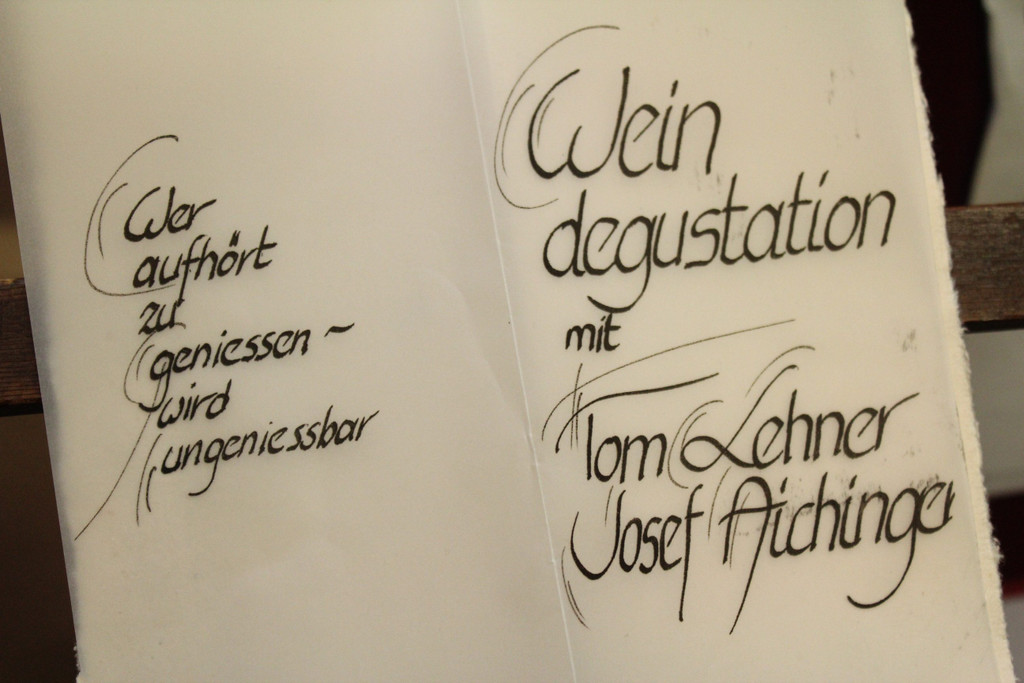 Wer
aufhört
zu
geniessen ~
wird
ungeniessbar
Wein
degustation
mit
Tom Lehner
Josef Aichinger